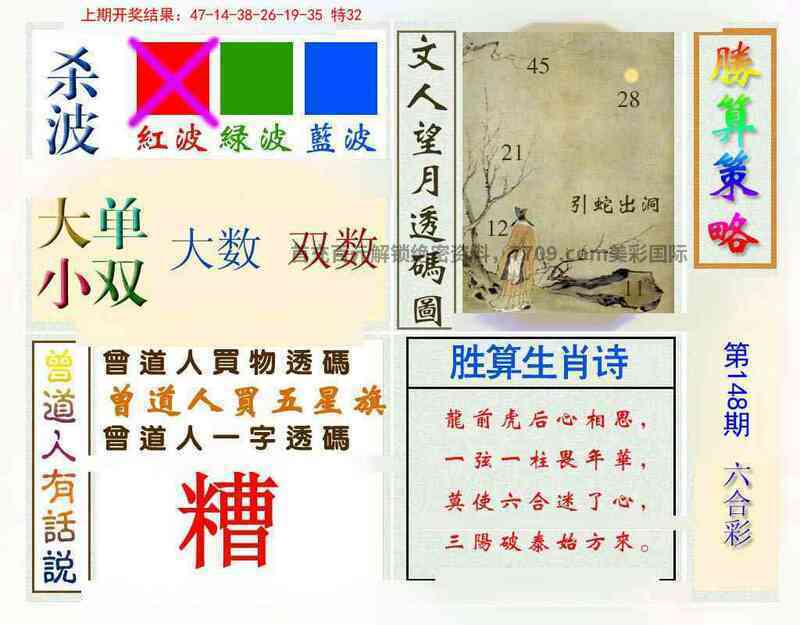 上期开奖结果：47-14-38-26-19-35 特32
杀波
紅波 緑波 藍波
大单小双
大数 双数
文人望月透碼圖
45
28
21
12
引蛇出洞
11
勝算策略
解锁绝密资料，7709.com美彩国际
曾道人有話説
曾道人買物透碼
曾道人買五星旗
曾道人一字透碼
糟
胜算生肖诗
龍前虎后心相思，
一弦一柱畏年華，
莫使六合迷了心，
三陽破泰始方來。
第148期 六合彩